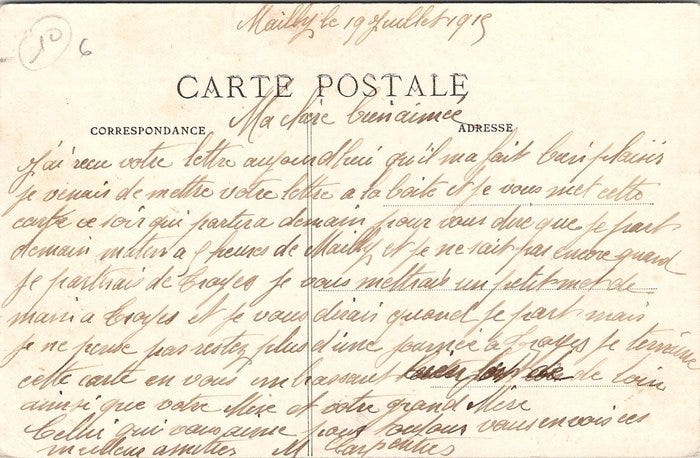 10 6
Mailly le 19 Juillet 1915
CARTE POSTALE
Ma Chère bien aimée
CORRESPONDANCE
ADRESSE
J'ai recu votre lettre aujourd'hui qu'il ma fait bien plaisir
je venais de mettre votre lettre a la boite et je vous met cette
carte ce soir qui partira demain pour vous dire que je part
demain matin a 5 heures de Mailly et je ne sait pas encore quand
je partirais de Troyes je vous mettrais un petit mot de
main a Troyes et je vous dirais quand je part mais
je ne pense pas rester plus d'une journée a Troyes Je termine
cette carte en vous embrassant de loin
ainsi que votre Mère et votre grand Mère
Cellui qui vous aime pour toujours vous envois ces
meilleurs amitiés M Carpentier